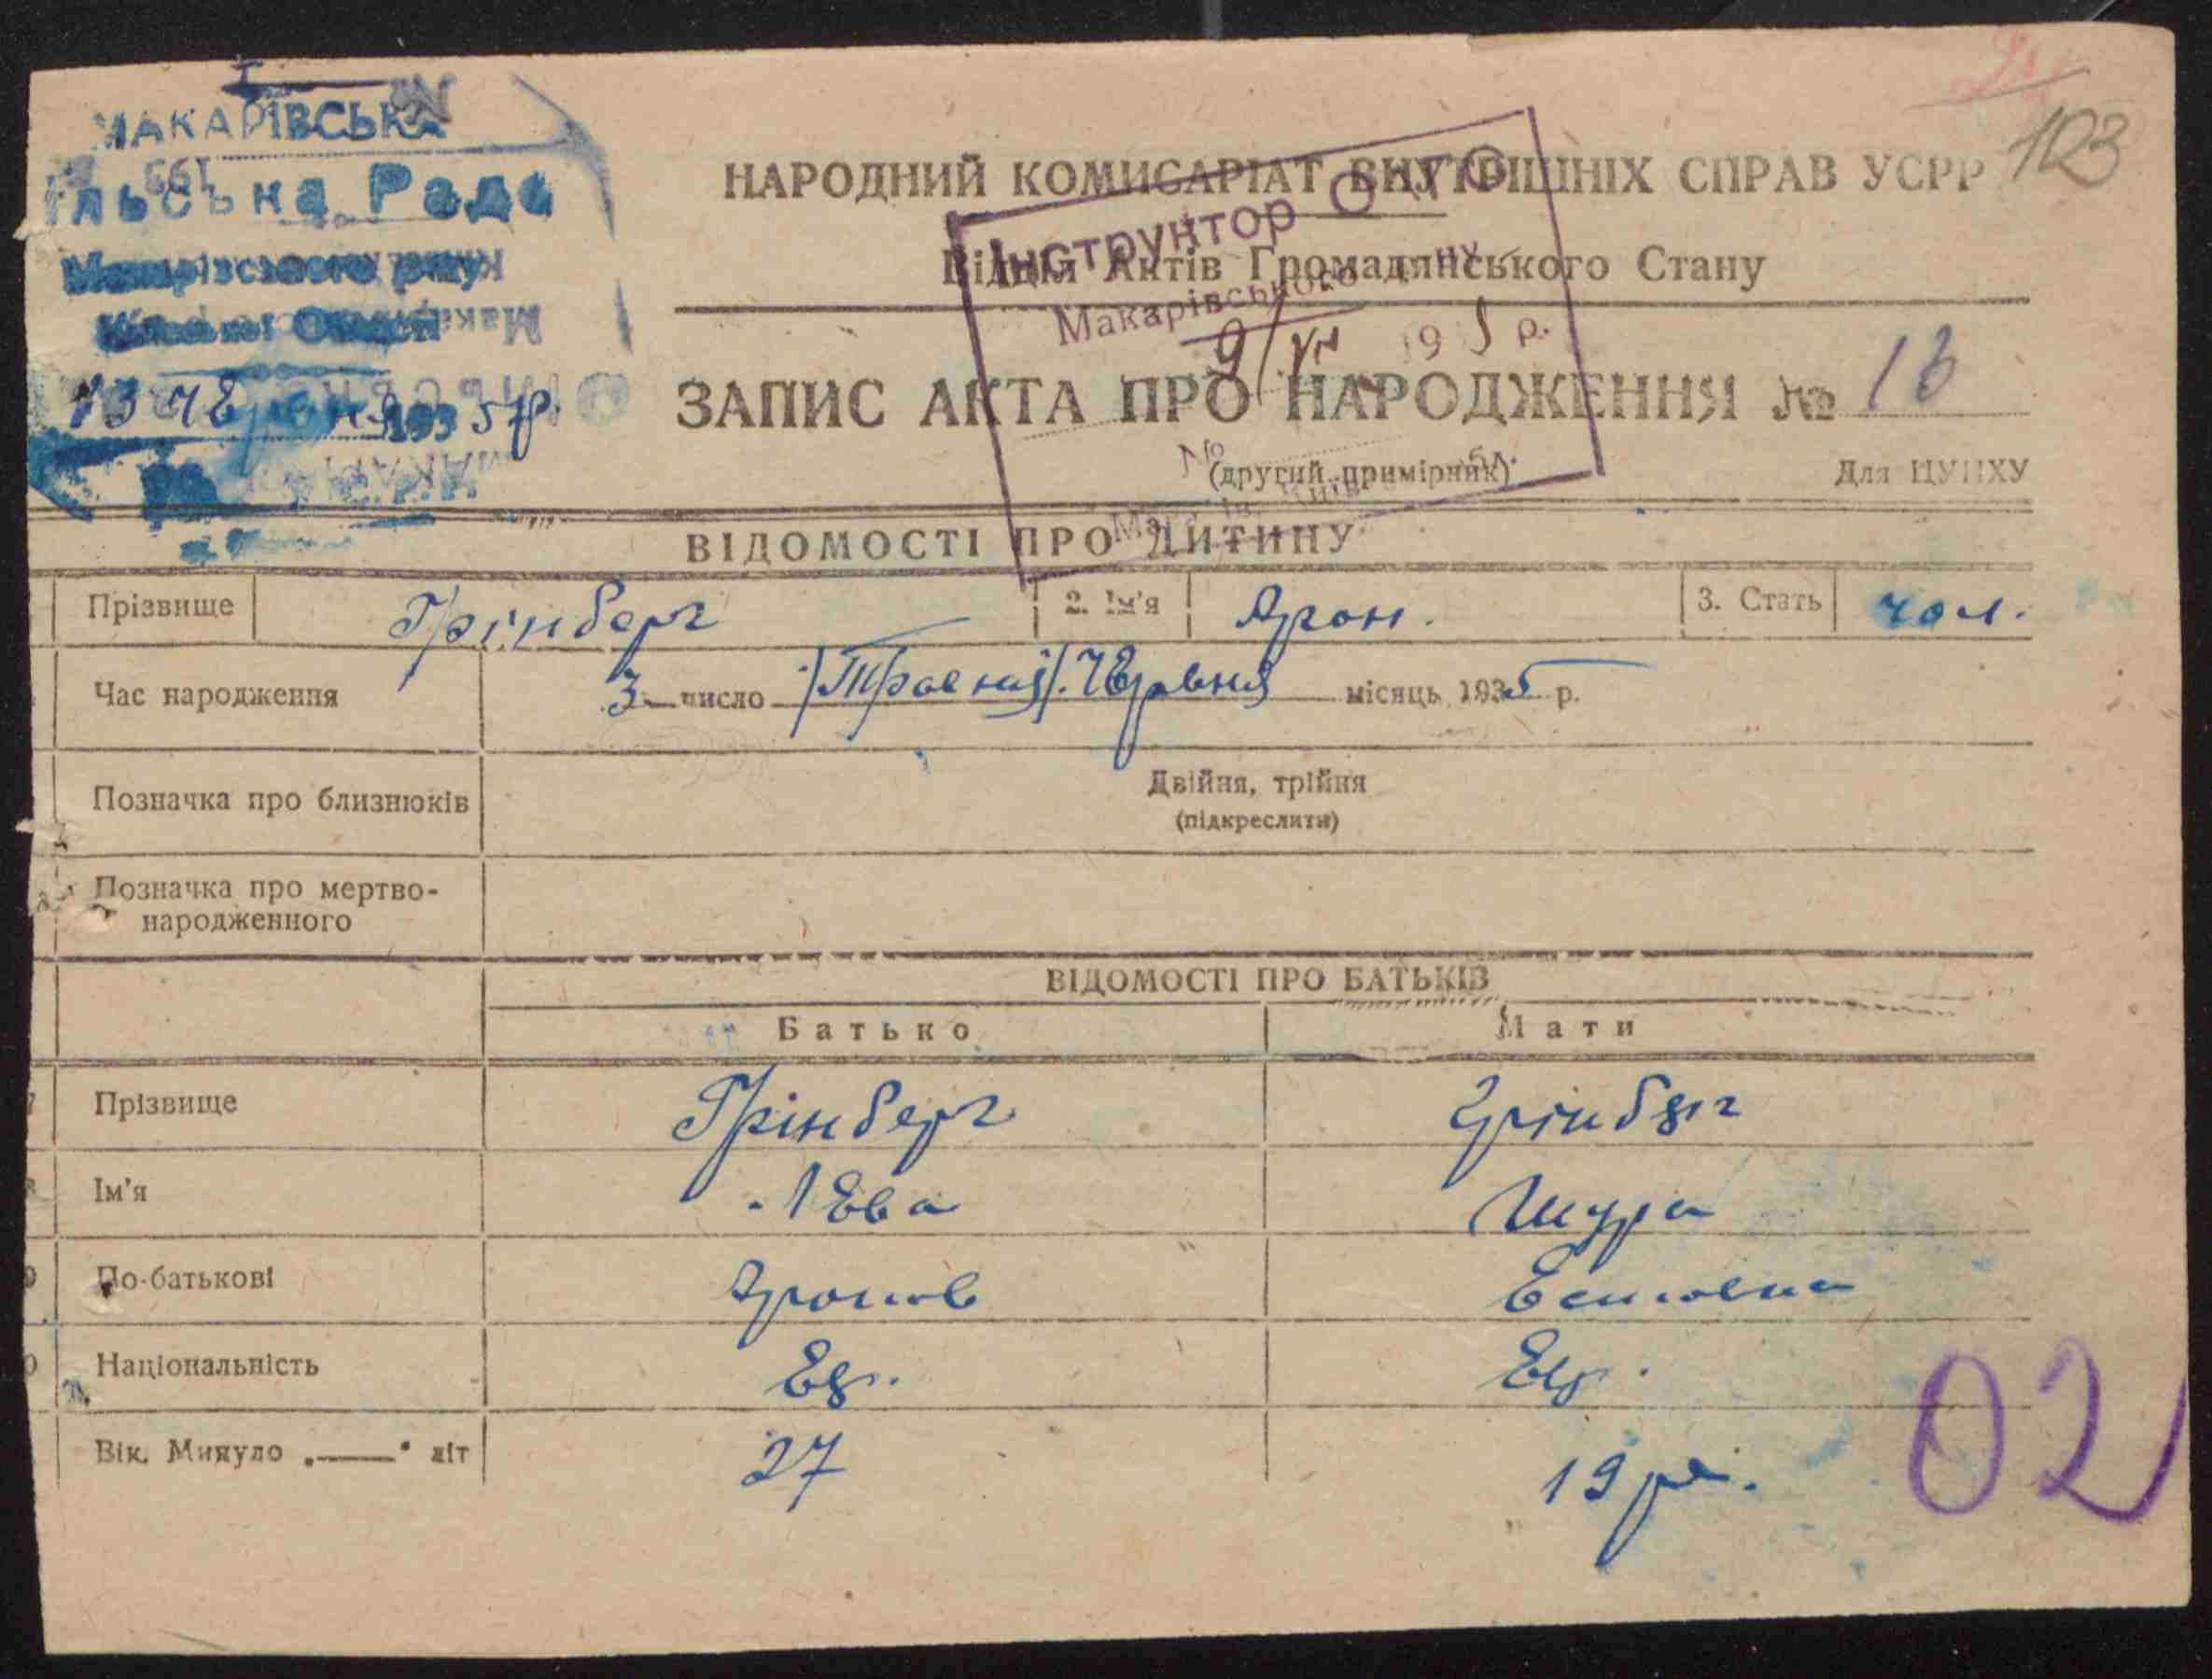 МАКАРІВСЬКА
ільська Рада
Макарівського р-ну
Київської Області
13 чЕрвня 1935 р.
123
НАРОДНИЙ КОМІСАРІАТ ВНУТРІШНІХ СПРАВ УСРР
Відділ Актів Громадянського Стану
Інструктор
Макарівського
9/VII 1935 р.
ЗАПИС АКТА ПРО НАРОДЖЕННЯ № 13
(другий примірник)
Для ЦУНХУ
ВІДОМОСТІ ПРО ДИТИНУ
Прізвище Грінберг 2. Ім'я Арон. 3. Стать чол.
Час народження 3 число /Травня/. ЧЕрвня місяць 1935 р.
Позначка про близнюків Двійня, трійня
(підкреслити)
Позначка про мертво-
народженного
ВІДОМОСТІ ПРО БАТЬКІВ
Батько Мати
Прізвище Грінберг Грінберг
Ім'я Лева Шура
По-батькові Аронов
Національність Евр. Евр.
Вік. Минуло „——“ літ 27 19 рс.
02